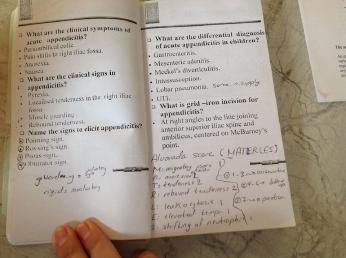 What are the clinical symptoms of
acute appendicitis?
Periumbilical colic.
Pain shifts to right iliac fossa.
Anorexia.
Nausea
What are the clinical signs in
appendicitis?
Pyrexia.
Localised tenderness in the right iliac
fossa.
Muscle guarding
Rebound tenderness.
Name the signs to elicit appendicitis?
Pointing sign.
Rovsing's sign.
Psoas sign.
Obturator sign.
What are the differential diagnosis
of acute appendicitis in children?
Gastroenteritis.
Mesenteric adenitis.
Meckel's diverticulitis.
Intussusception.
Lobar pneumonia. Same n. supply
UTI.
What is grid –iron incision for
appendicitis?
At right angles to the line joining
anterior superior iliac spine and
umbilicus, centered on McBurney's
point.
Alvarado score (MANTRELS)
M: migratory
A:
T: tenderness 2
R: rebound tenderness
L: leukocytosis
E: elevated temp. 1
S: shifting of neutrophils